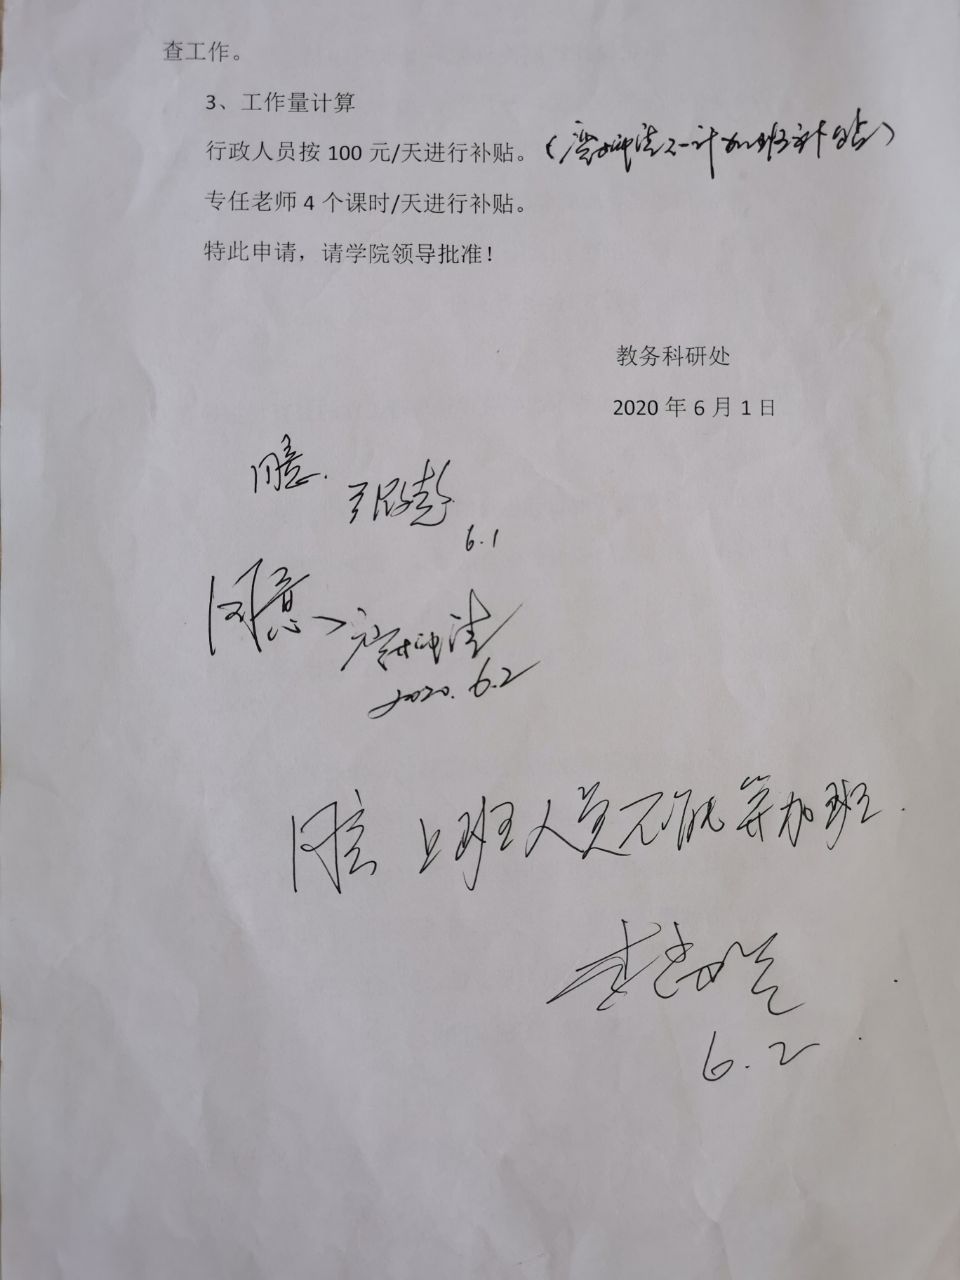 查工作。
3、工作量计算
行政人员按 100 元/天进行补贴。(不计加班补贴)
专任老师 4 个课时/天进行补贴。
特此申请，请学院领导批准！
教务科研处
2020 年 6 月 1 日
同意.
6.1
同意
2020.6.2
同意 上班人员不能算加班.
6.2